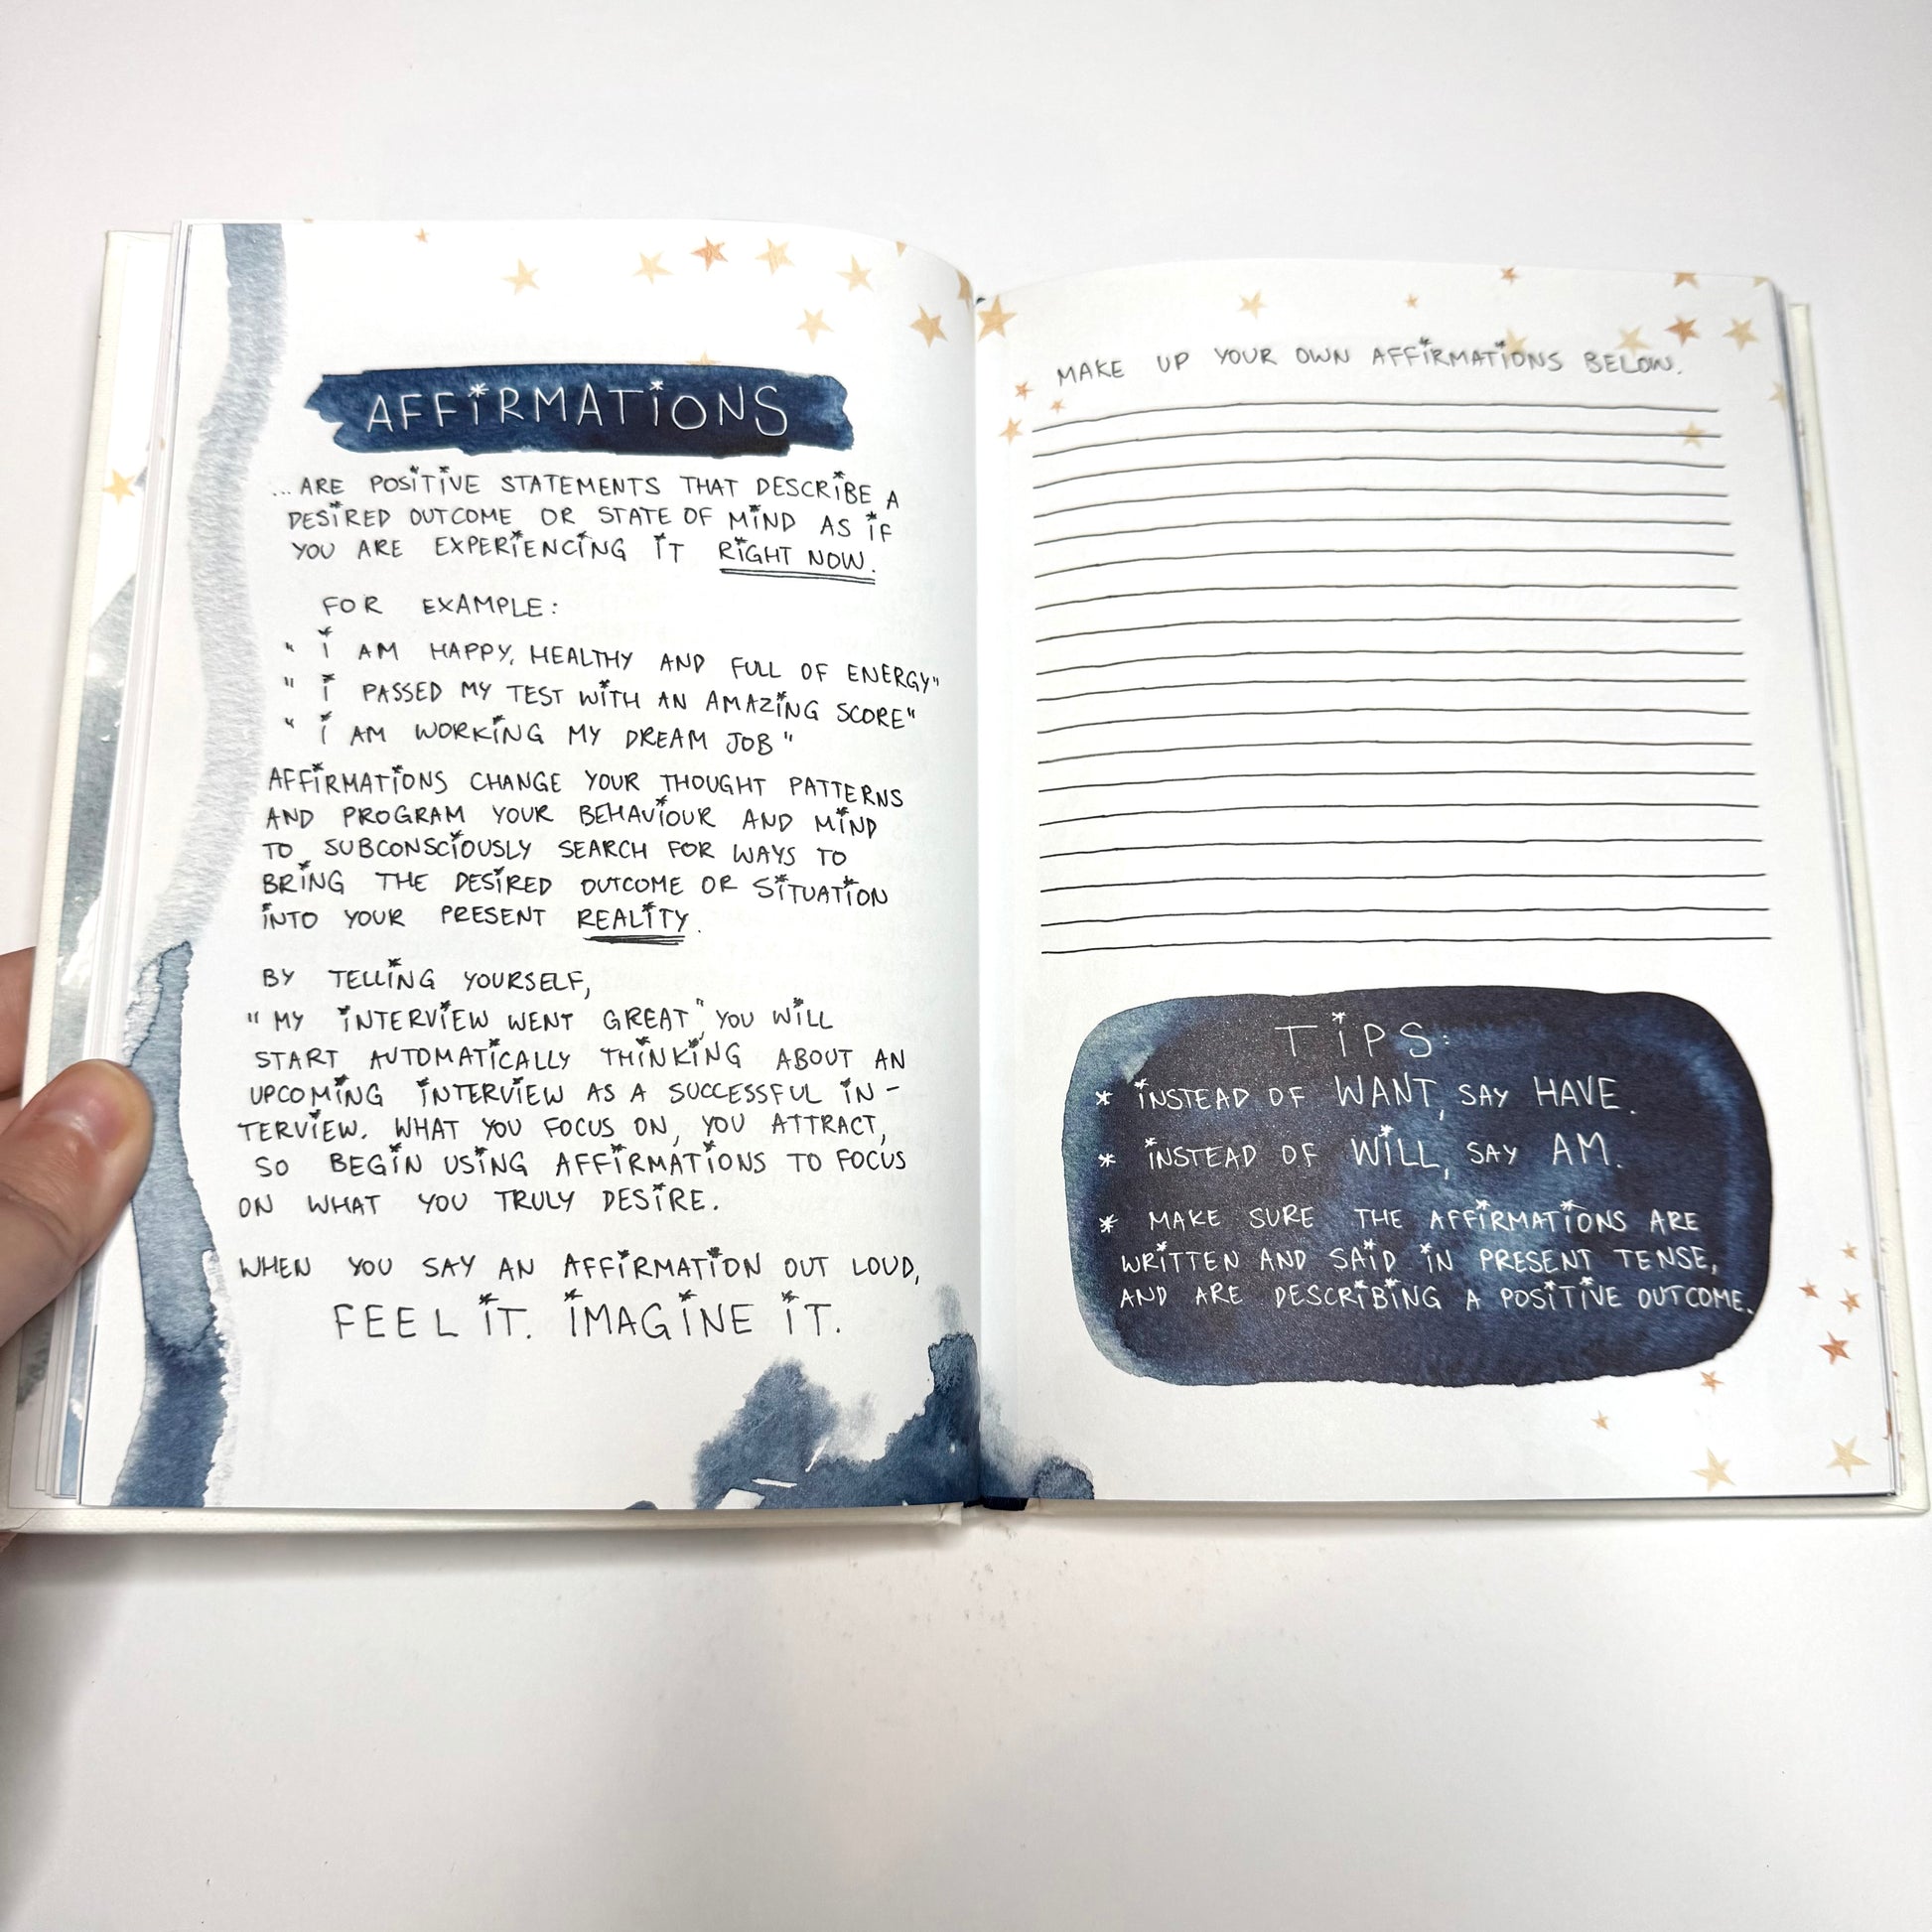 AFFiRMATiONS
...ARE POSiTiVE STATEMENTS THAT DESCRiBE A
DESiRED OUTCOME OR STATE OF MiND AS iF
YOU ARE EXPERiENCiNG iT RiGHT NOW.
FOR EXAMPLE:
" i AM HAPPY, HEALTHY AND FULL OF ENERGY"
" i PASSED MY TEST WiTH AN AMAZiNG SCORE"
" i AM WORKiNG MY DREAM JOB"
AFFiRMATiONS CHANGE YOUR THOUGHT PATTERNS
AND PROGRAM YOUR BEHAViOUR AND MiND
TO SUBCONSCiOUSLY SEARCH FOR WAYS TO
BRiNG THE DESiRED OUTCOME OR SiTUATiON
iNTO YOUR PRESENT REALiTY.
BY TELLiNG YOURSELF,
"MY iNTERViEW WENT GREAT", YOU WiLL
START AUTOMATiCALLY THiNKiNG ABOUT AN
UPCOMiNG iNTERViEW AS A SUCCESSFUL iN-
TERViEW. WHAT YOU FOCUS ON, YOU ATTRACT,
SO BEGiN USiNG AFFiRMATiONS TO FOCUS
ON WHAT YOU TRULY DESiRE.
WHEN YOU SAY AN AFFiRMATiON OUT LOUD,
FEEL iT. iMAGiNE iT.
MAKE UP YOUR OWN AFFiRMATiONS BELOW.
TiPS:
* iNSTEAD OF WANT, SAY HAVE.
* iNSTEAD OF WiLL, SAY AM.
* MAKE SURE THE AFFiRMATiONS ARE
WRiTTEN AND SAiD iN PRESENT TENSE,
AND ARE DESCRiBiNG A POSiTiVE OUTCOME.